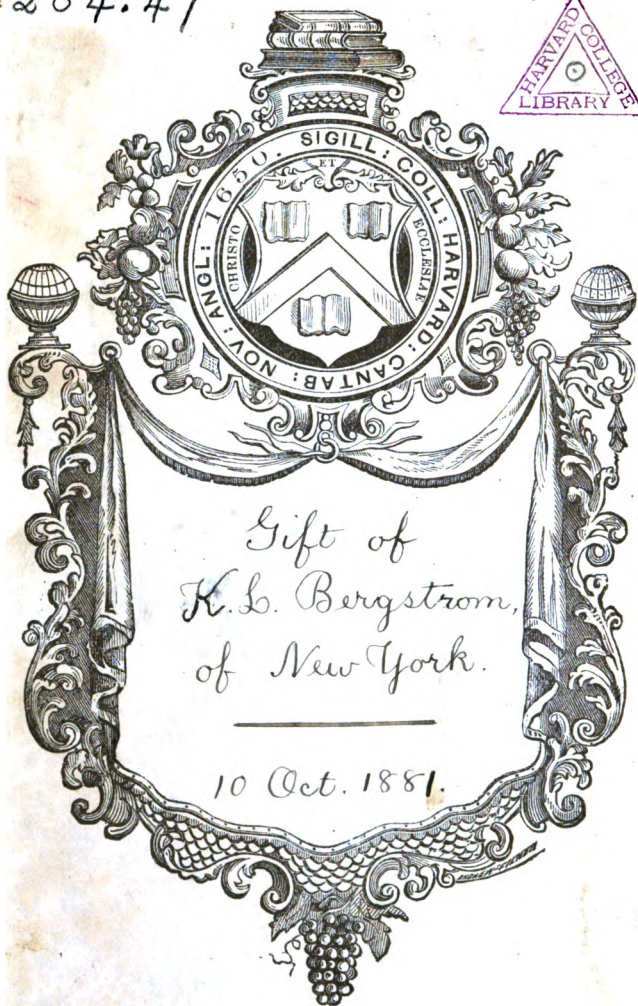 204.47
HARVARD COLLEGE
LIBRARY
SIGILL: COLL: HARVARD: CANTAB: NOV: ANGL: 1650.
ET
CHRISTO
ECCLESIAE
Gift of
K. L. Bergstrom,
of New York.
10 Oct. 1881.